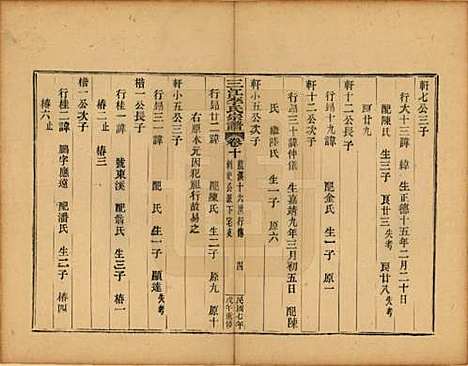 軒七公三子
行大十三諱緯 生正德十五年二月二十日
配陳氏 生三子 良廿三失考 良廿八失考
良廿九
軒十二公長子
行昂十九諱 配金氏 生一子 原一
行昂三十諱仲儀 生嘉靖九年三月初五日 配陳
氏 繼陸氏 生一子 原六
軒小五公次子
三江李氏宗譜 卷十 四 民國七年 戊午重修
行昂廿二諱 配陳氏 生二子 原九 原十
右原本元因犯祖行故易之
軒小五公三子
行昂三一諱 配氏 生一子 顯達失考
楷一公長子
行桂一諱 號東溪 配翁氏 生三子 椿一
椿二止 椿三
楷一公次子
行桂二諱 鵬字應遠 配潘氏 生二子 椿四
椿六止